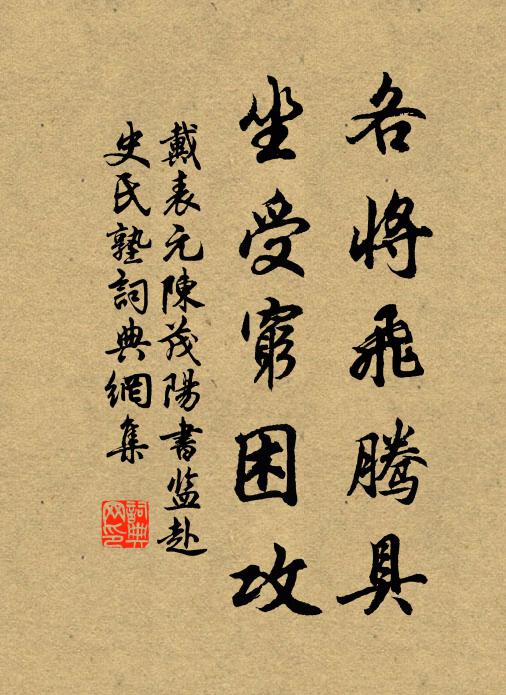 各將飛騰具
坐受窮困攻
戴表元陳茂陽書监赴
史氏塾詞典網集
詞典網印